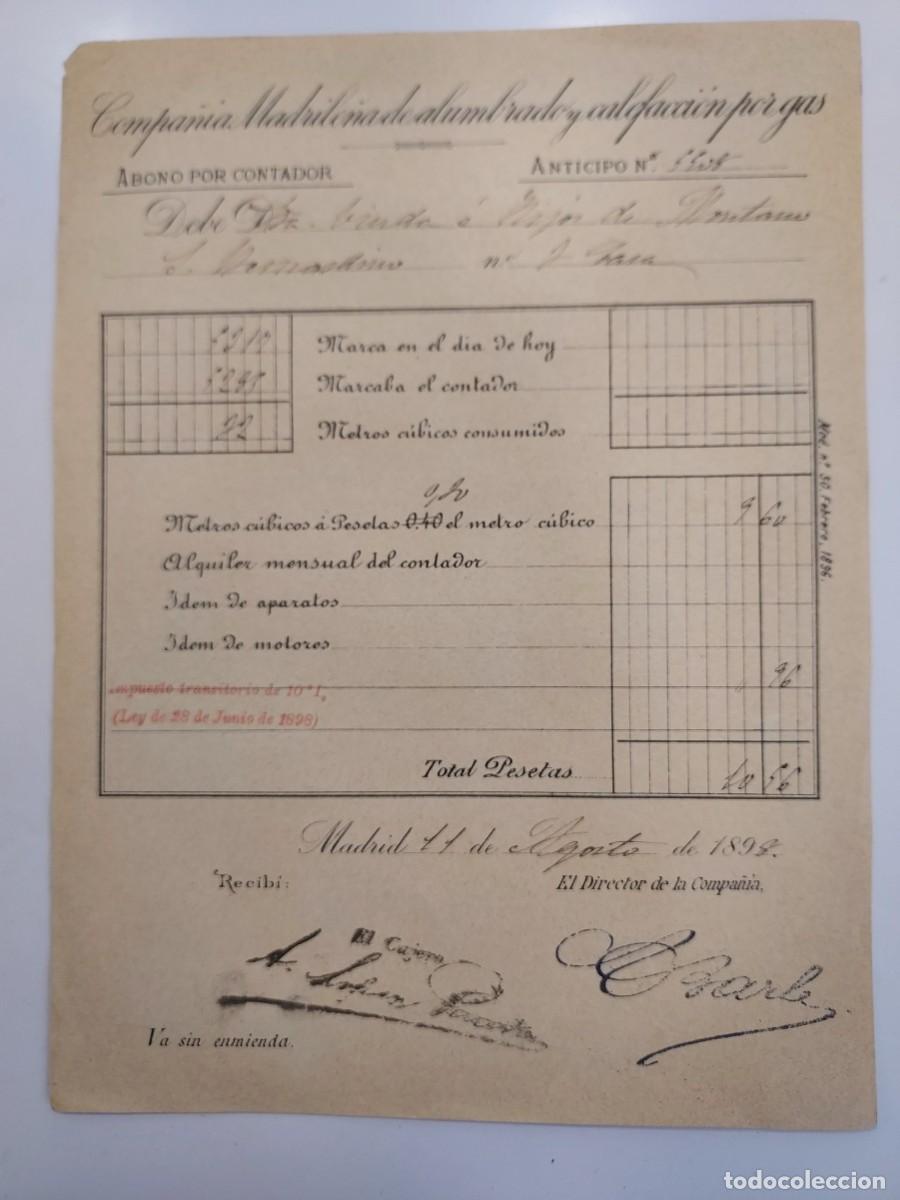 Compañia Madrileña de alumbrado y calefacción por gas
ABONO POR CONTADOR
ANTICIPO Nº
Debe Viuda é Hijos de
S. Bernardino nº
Marca en el dia de hoy
Marcaba el contador
22 Metros cúbicos consumidos
Metros cúbicos á Pesetas 0.40 el metro cúbico 9 60
Alquiler mensual del contador
Idem de aparatos
Idem de motores
96
Impuesto transitorio de 10 º/º
(Ley de 28 de Junio de 1898)
Total Pesetas 10 56
Madrid 11 de Agosto de 1898.
Recibí:
El Director de la Compañía,
El Cajero
A. López
Va sin enmienda.
Mod. nº 50. Febrero, 1896.
todocoleccion